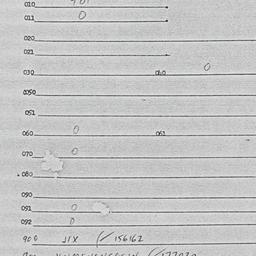 010
011 0
020
021
030 040 0
050
051
060 0 061
070 0
080
090
091 0
092 0
900 JIX 156162